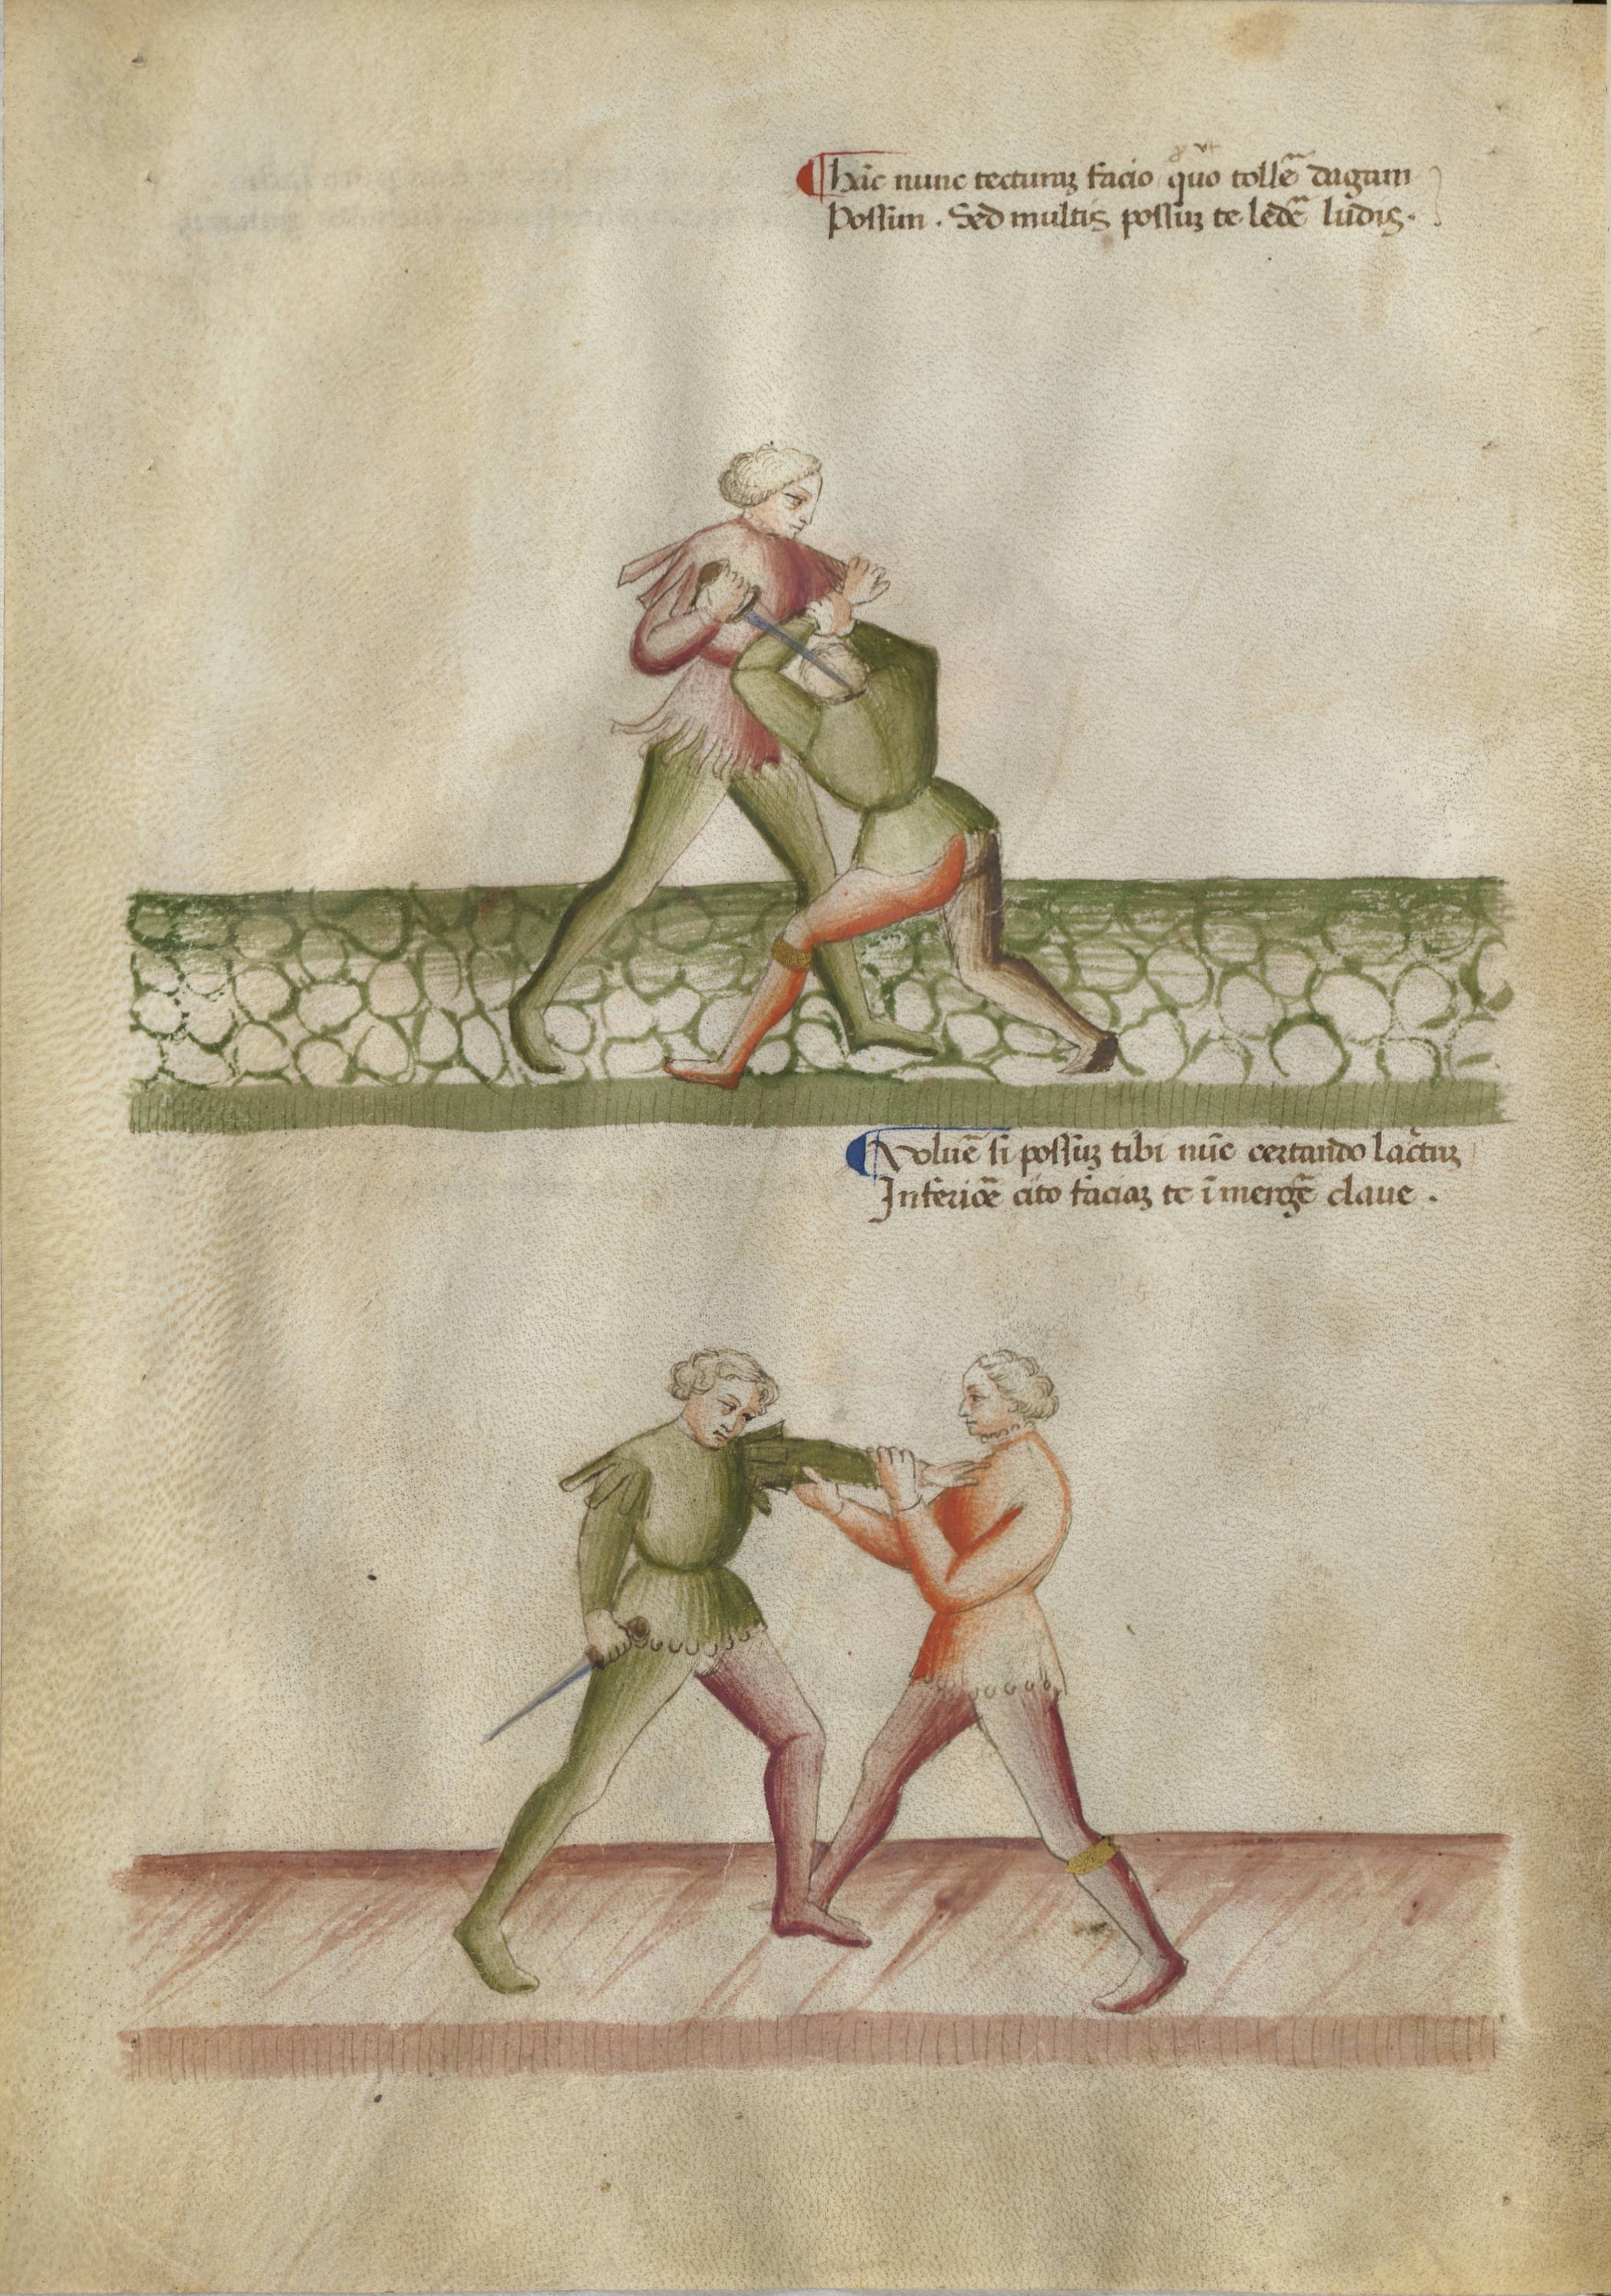 ¶ hāc nunc tecturaʒ facio quo tollē dagam
Possim . Sed multis possuʒ te ledē ludis .
¶ Voluē si possuʒ tibi nūc certando lacertuʒ
Inferiōē cito faciaʒ te ī mergē claue .